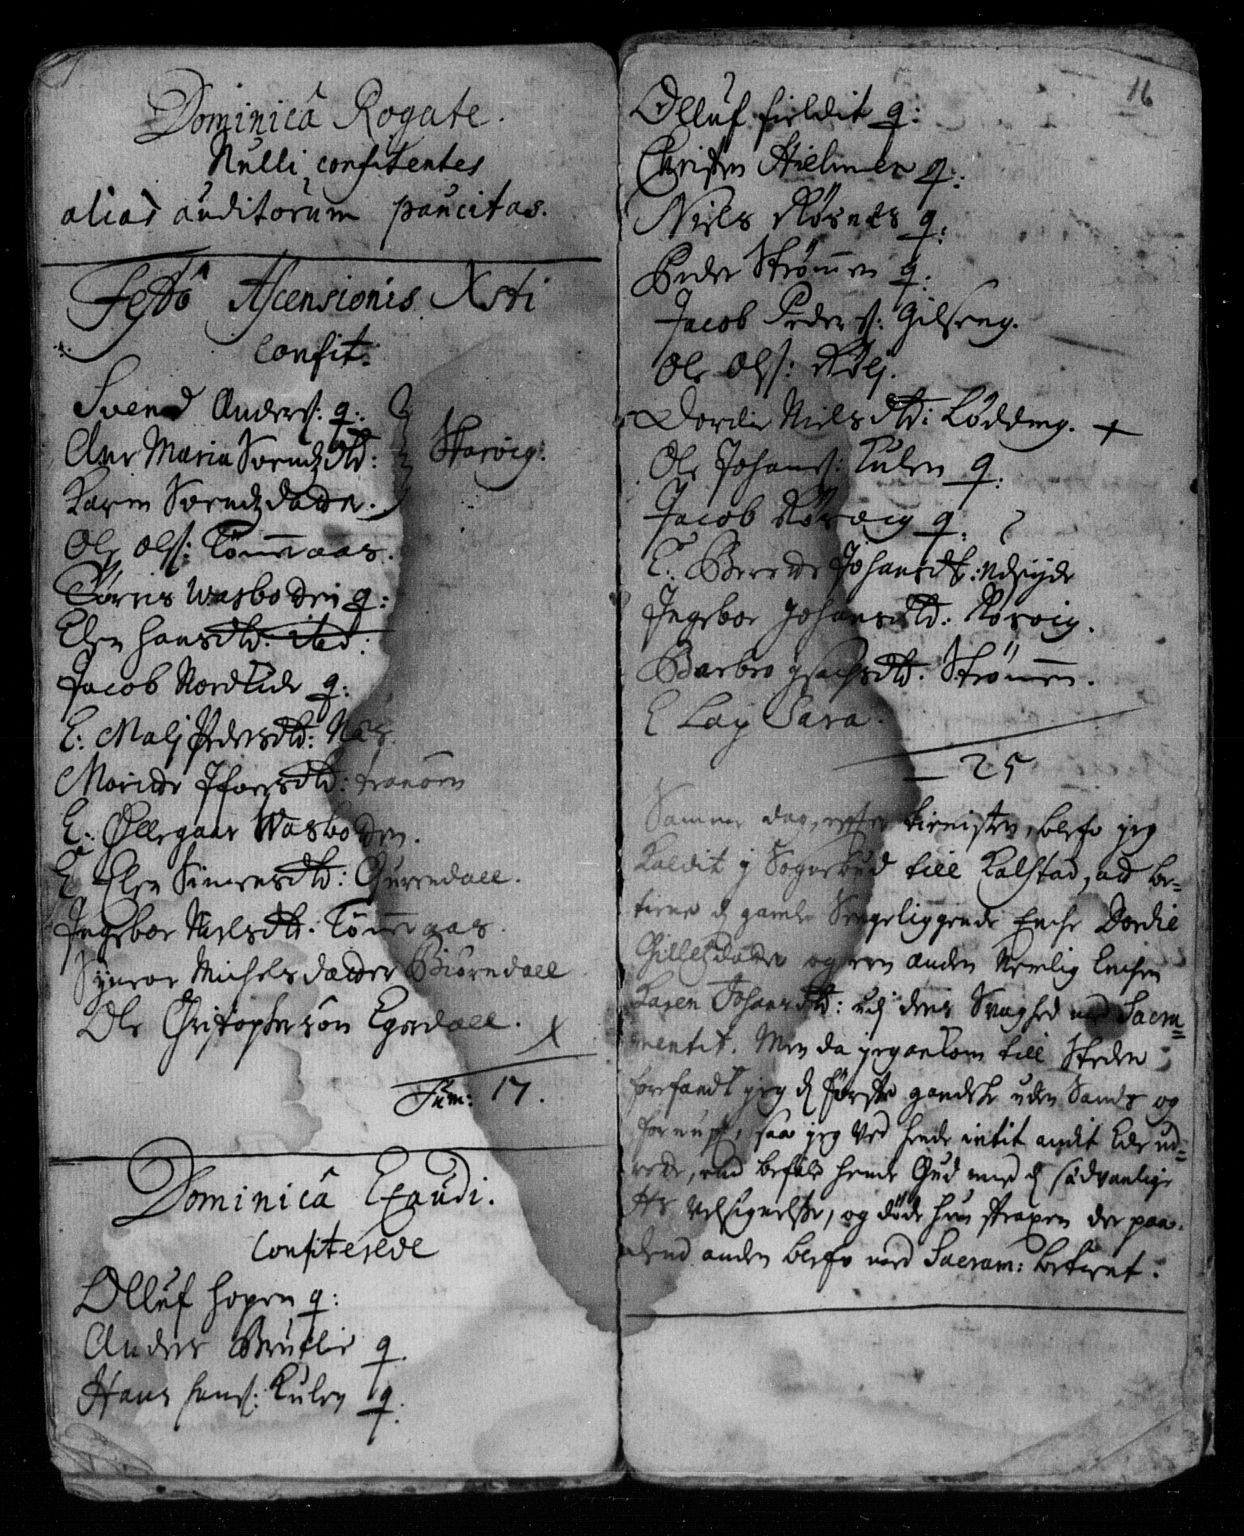 Dominicâ Rogate.
Nulli confitentes
alias auditorum paucitas.
Festô Ascensionis Xsti
Confit:
Svend Anders: q:
Ane Maria Svendzdtd: Skarvig.
Karen Svendzdatter.
Ole Ols: Tømmaas.
Tørris Wasbotten q:
Elen Hansdtd: ibd:
Jacob Nordlide q:
E: Malj Pedersdtd: Næs
Maritte Ifversdtd: tranøen
E: Øllegaar Wasbotten.
E Elen Simensdtd: Gurendall.
Ingebor Nielsdtd: Tømmaas.
Synnor Michelsdatter Biørndall
Ole Christopherson Egerdall. X
Sum: 17.
Dominicâ Exaudi.
Confiterede
Olluf Hopen q:
Anders Brutlie q.
Hans Hans: Kulen q.
16
Olluf fieldit q:
Christen Hielmen q:
Niels Røsnes q:
Peder Strømmen q.
Jacob Peders: Gilseng.
Ole Ols: Røli.
Dordie Nielsdtd: Lødding. +
Ole Johans: Kulen q.
Jacob Rørvig q.
E: Berette Johansdtd: Udsyde
Ingebor Johansdtd: Rørvig.
Barbro Isachsdtd: Strømmen.
E Lap Sara.
25
Samme dag, efter tienisten, blef jeg
Kaldit j Sognebud till Kalstad, at be-
tiene d gamle Sengeliggende Enche Dordie
Gillesdatter og een anden Nemlig Enchen
Karen Johansdtd: udj deris Svaghed med Sacra-
mentit. Men da jeg ankom till Stedet
forefandt jeg d første gandske uden Sands og
fornuft, saa jeg ved hende intit andit Kunde ud-
rette, end befale hende Gud med d sædvanlige
Hr Velsignelse, og døde hun straxen der paa.
Mend anden blef med Sacram: betient.